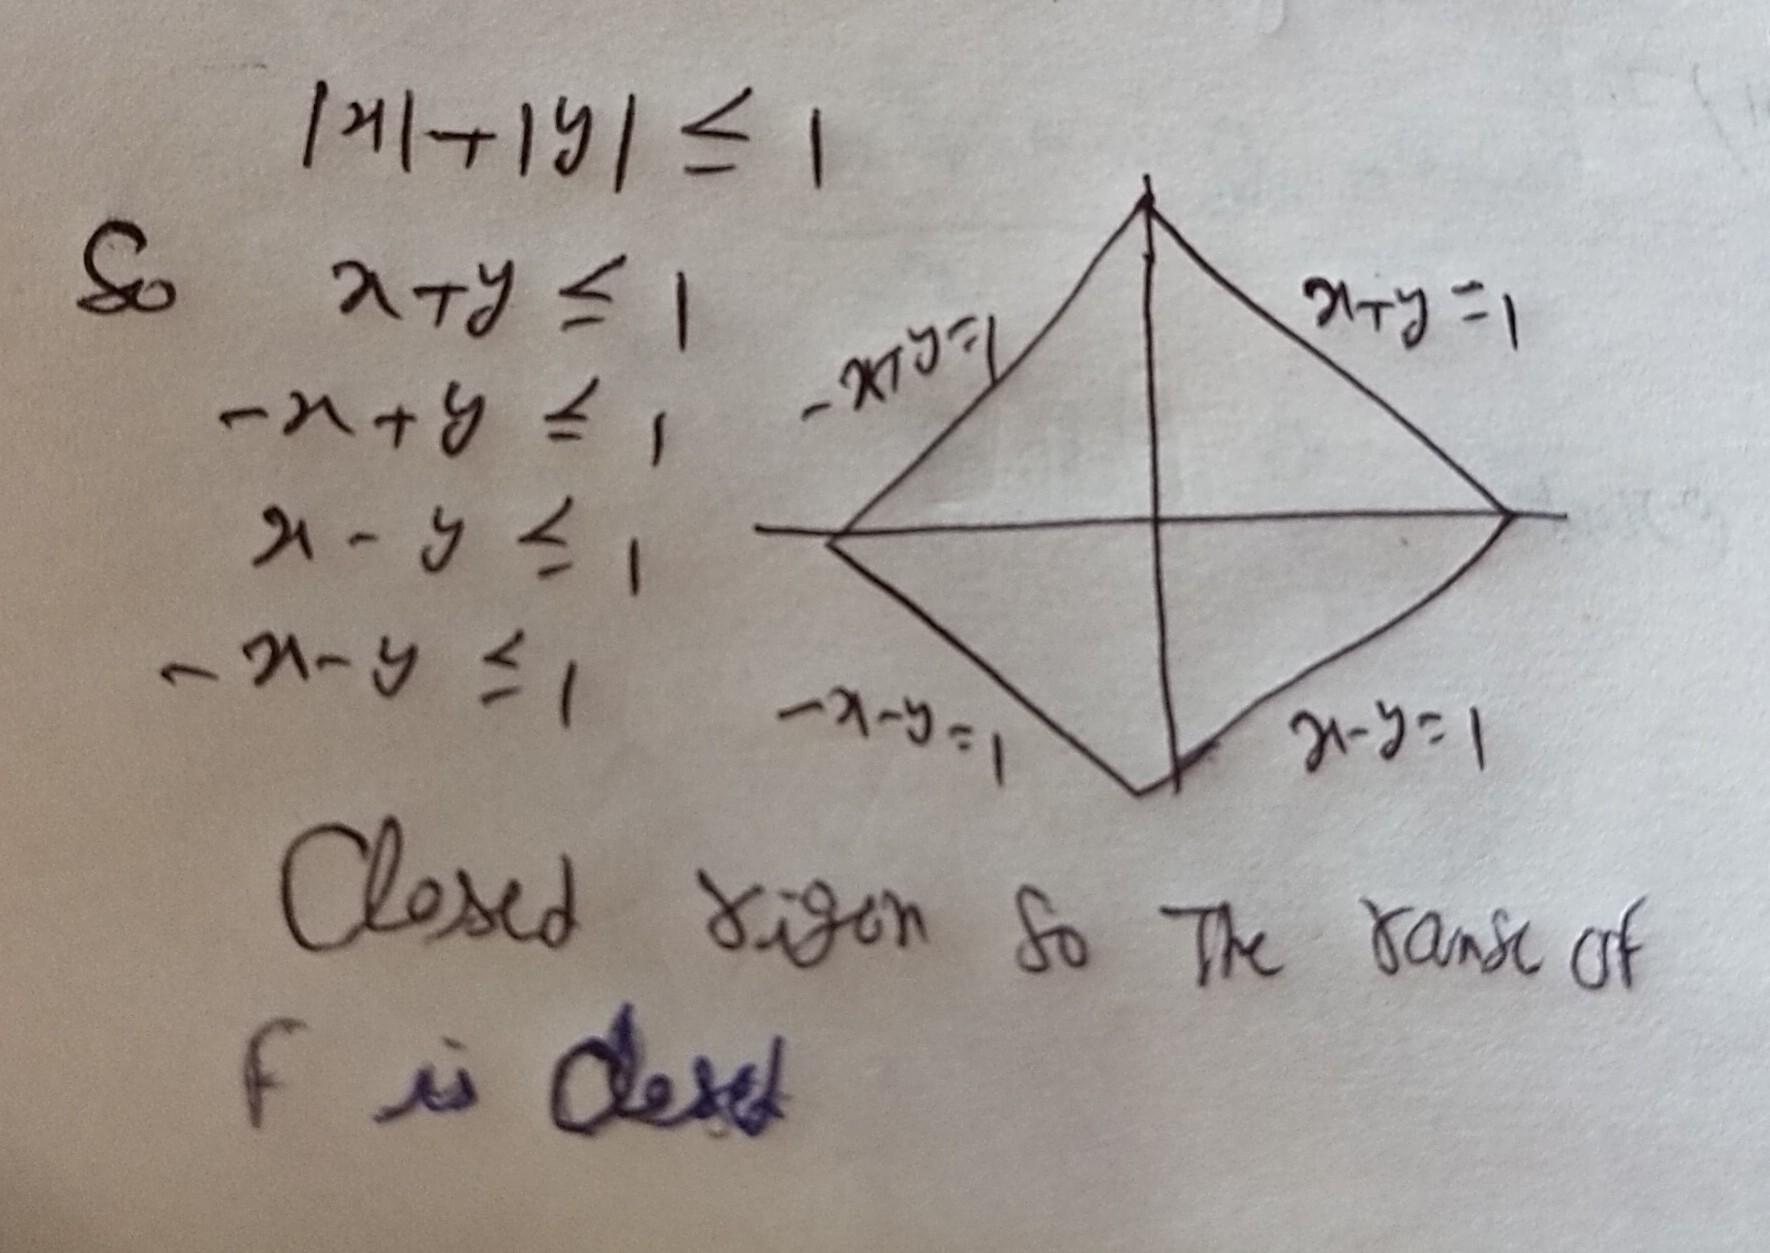 |x|+|y| ≤ 1
So x+y ≤ 1
-x+y ≤ 1
x-y ≤ 1
-x-y ≤ 1
-x+y=1
x+y=1
-x-y=1
x-y=1
Closed rigon So The range of
f is closed